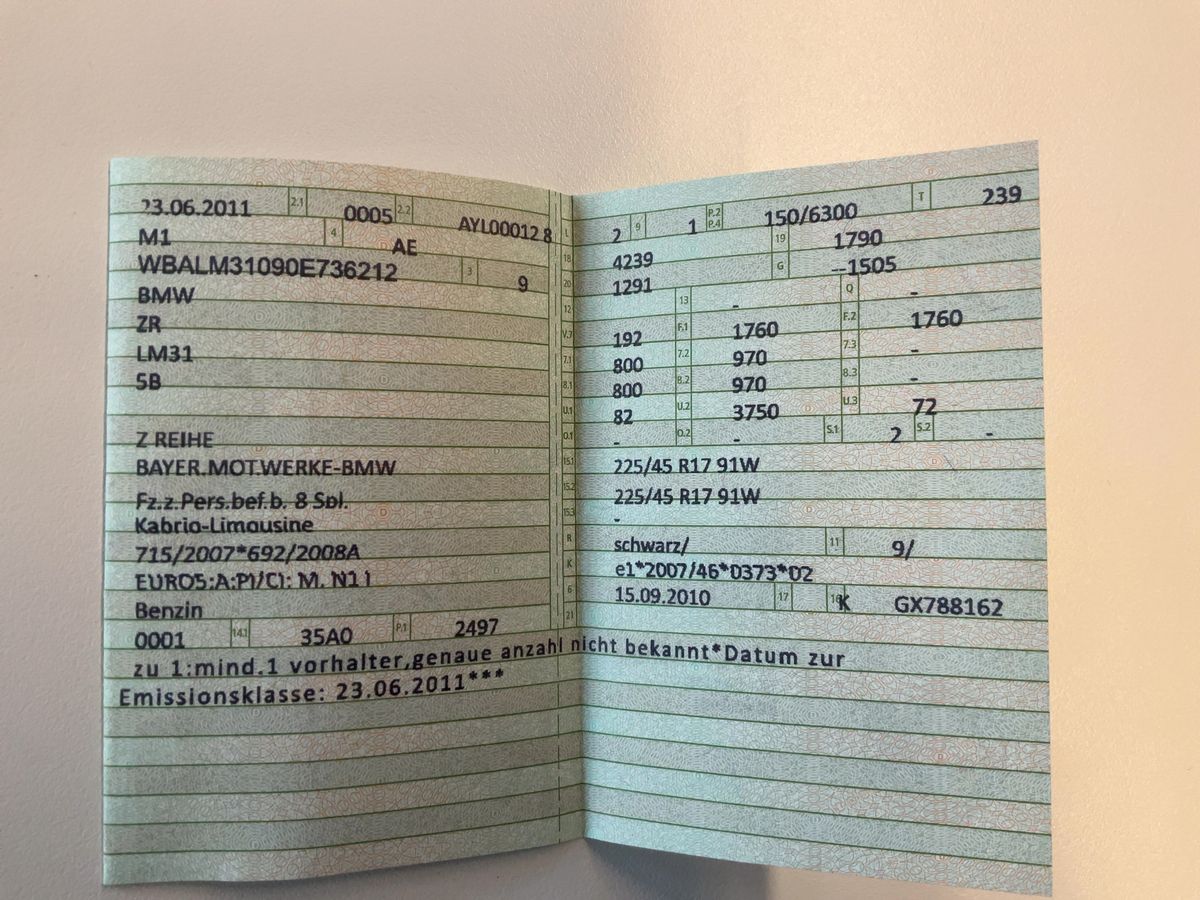 23.06.2011 2.1 0005 2.2 AYL00012 8
M1 4 AE
WBALM31090E736212 3 9
BMW
ZR
LM31
5B
Z REIHE
BAYER.MOT.WERKE-BMW
Fz.z.Pers.bef.b. 8 Spl.
Kabrio-Limousine
715/2007*692/2008A
EURO5;A;PI/CI; M, N1 I
Benzin
0001 14.1 35A0 P.1 2497
L 2 9 1 P.2 P.4 150/6300 T 239
18 4239 19 1790
20 1291 G --1505
12 13 - Q -
V.7 192 F.1 1760 F.2 1760
7.1 800 7.2 970 7.3 -
8.1 800 8.2 970 8.3 -
U.1 82 U.2 3750 U.3 72
O.1 - O.2 - S.1 2 S.2 -
15.1 225/45 R17 91W
15.2 225/45 R17 91W
15.3 -
R schwarz/ 11 9/
K e1*2007/46*0373*02
6 15.09.2010 17 K 16 GX788162
21
zu 1:mind.1 vorhalter,genaue anzahl nicht bekannt*Datum zur
Emissionsklasse: 23.06.2011***